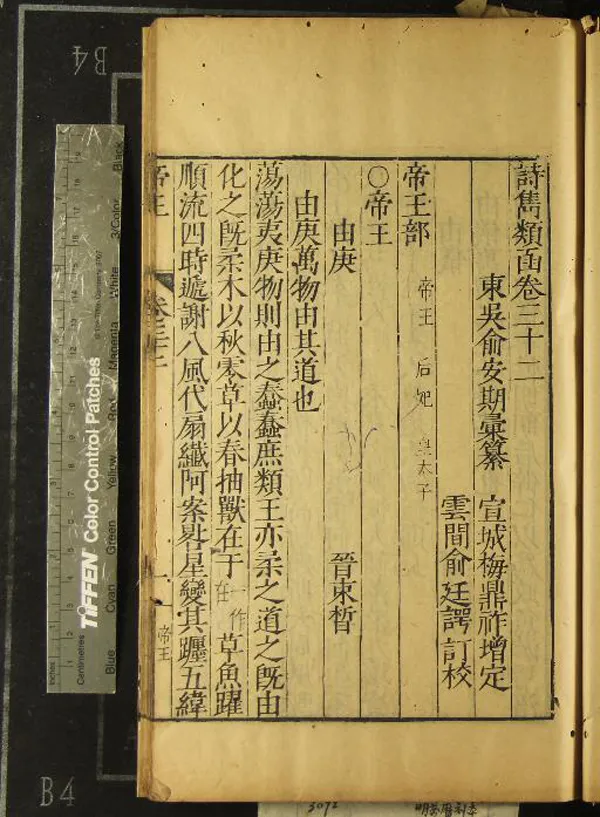 詩雋類函卷三十二
東吳俞安期彙纂 宣城梅鼎祚增定
雲間俞廷諤訂校
帝王部
帝王 后妃 皇太子
○帝王
由庚 晉束晳
由庚萬物由其道也
蕩蕩夷庚物則由之蠢蠢庶類王亦柔之道之既由
化之既柔木以秋零草以春抽獸在于一作在草魚躍
順流四時遞謝八風代扇纖阿案晷星變其躔五緯
帝王 卷三十二 一 帝王
B4
B4
TIFFEN Color Control Patches
Inches
Centimetres
Blue Cyan Green Yellow Red Magenta White 3/Color Black
3072
明萬曆刻本